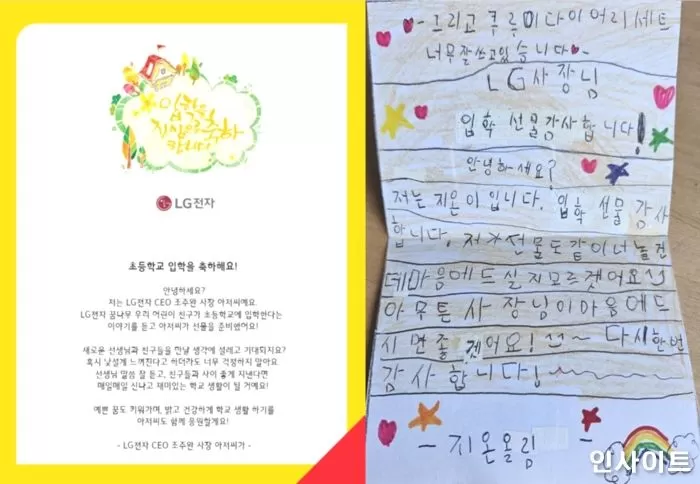 입학을
진심으로 축하
합니다!
LG전자
초등학교 입학을 축하해요!
안녕하세요?
저는 LG전자 CEO 조주완 사장 아저씨예요.
LG전자 꿈나무 우리 어린이 친구가 초등학교에 입학한다는
이야기를 듣고 아저씨가 선물을 준비했어요!
새로운 선생님과 친구들을 만날 생각에 설레고 기대되지요?
혹시 낯설게 느껴진다고 하더라도 너무 걱정하지 말아요.
선생님 말씀 잘 듣고, 친구들과 사이 좋게 지낸다면
매일매일 신나고 재미있는 학교 생활이 될 거예요!
예쁜 꿈도 키워가며, 밝고 건강하게 학교 생활 하기를
아저씨도 함께 응원할게요!
- LG전자 CEO 조주완 사장 아저씨가 -
- 그리고 쿠루미다이어리세트
너무잘쓰고있습니다
LG사장님
입학 선물감사합니다!
안녕하세요?
저는 지온이입니다. 입학 선물 감사
합니다. 저가선물도같이너놓건
데마음에드실지모르겟어요
아무튼사장님이마음에드
시면좋겠어요! ~ 다시한번
감사합니다!
- 지온올림 -
인사이트